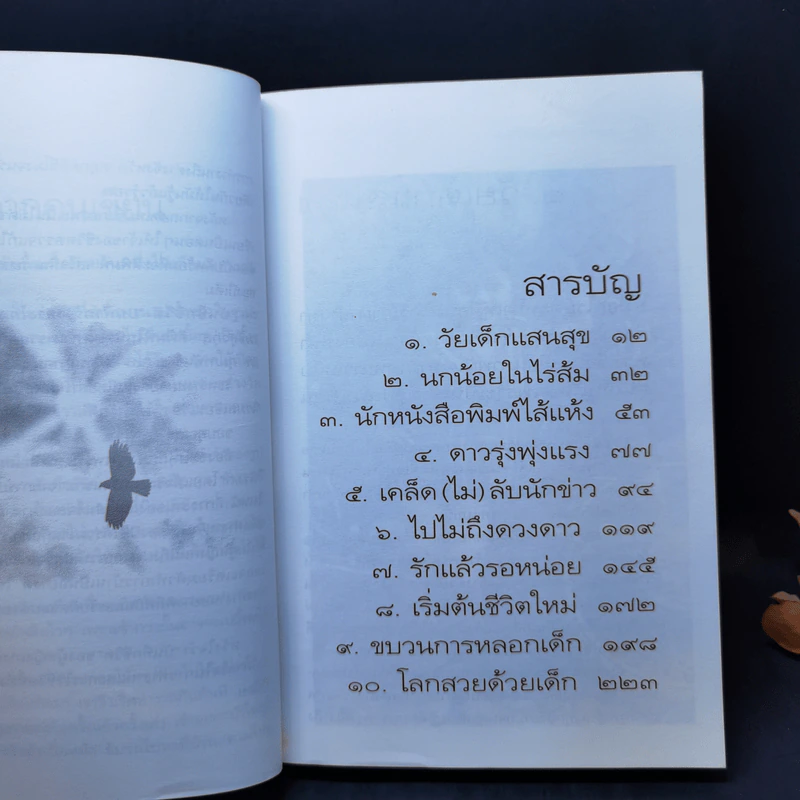 สารบัญ
๑. วัยเด็กแสนสุข ๑๒
๒. นกน้อยในไร่ส้ม ๓๒
๓. นักหนังสือพิมพ์ไส้แห้ง ๕๓
๔. ดาวรุ่งพุ่งแรง ๗๗
๕. เคล็ด (ไม่) ลับนักข่าว ๙๔
๖. ไปไม่ถึงดวงดาว ๑๑๙
๗. รักแล้วรอหน่อย ๑๔๕
๘. เริ่มต้นชีวิตใหม่ ๑๗๒
๙. ขบวนการหลอกเด็ก ๑๙๘
๑๐. โลกสวยด้วยเด็ก ๒๒๓